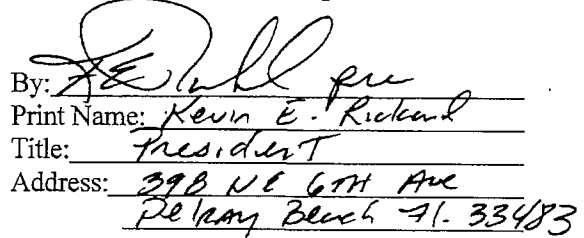 By: pre
Print Name: Kevin E. Rickard
Title: President
Address: 398 NE 6TH Ave
Delray Beach Fl. 33483